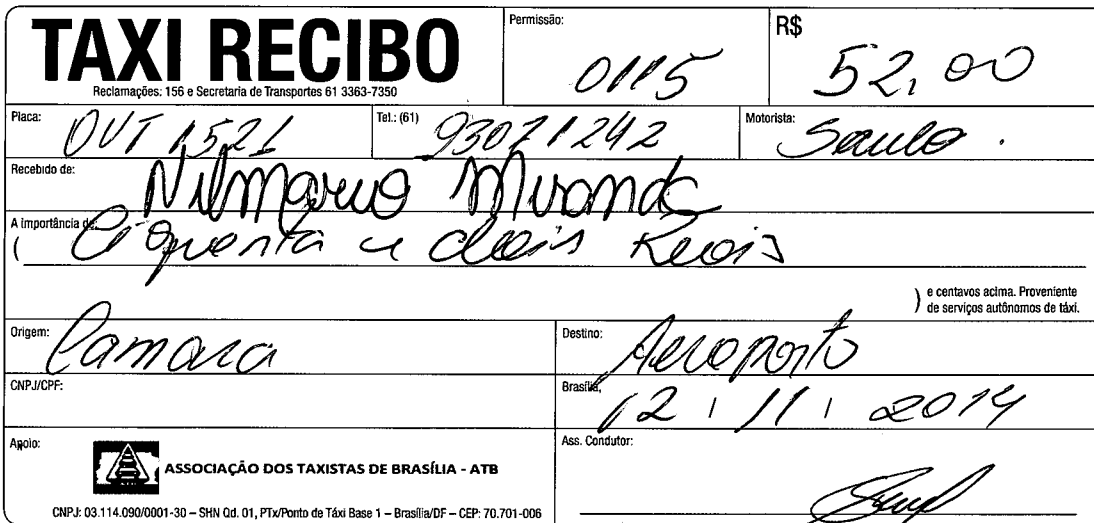 TAXI RECIBO
Reclamações: 156 e Secretaria de Transportes 61 3363-7350
Permissão: 0115
R$ 52,00
Placa: OVT 1521
Tel.: (61) 93071242
Motorista: Saulo.
Recebido de: Nilmario Miranda
A importância de
( Ciquenta e dois Reois
) e centavos acima. Proveniente
de serviços autônomos de táxi.
Origem: Camara
Destino: Aeroporto
CNPJ/CPF:
Brasília, 12 / 11 / 2014
Apoio:
ASSOCIAÇÃO DOS TAXISTAS DE BRASÍLIA - ATB
CNPJ: 03.114.090/0001-30 – SHN Qd. 01, PTx/Ponto de Táxi Base 1 – Brasília/DF – CEP: 70.701-006
Ass. Condutor: